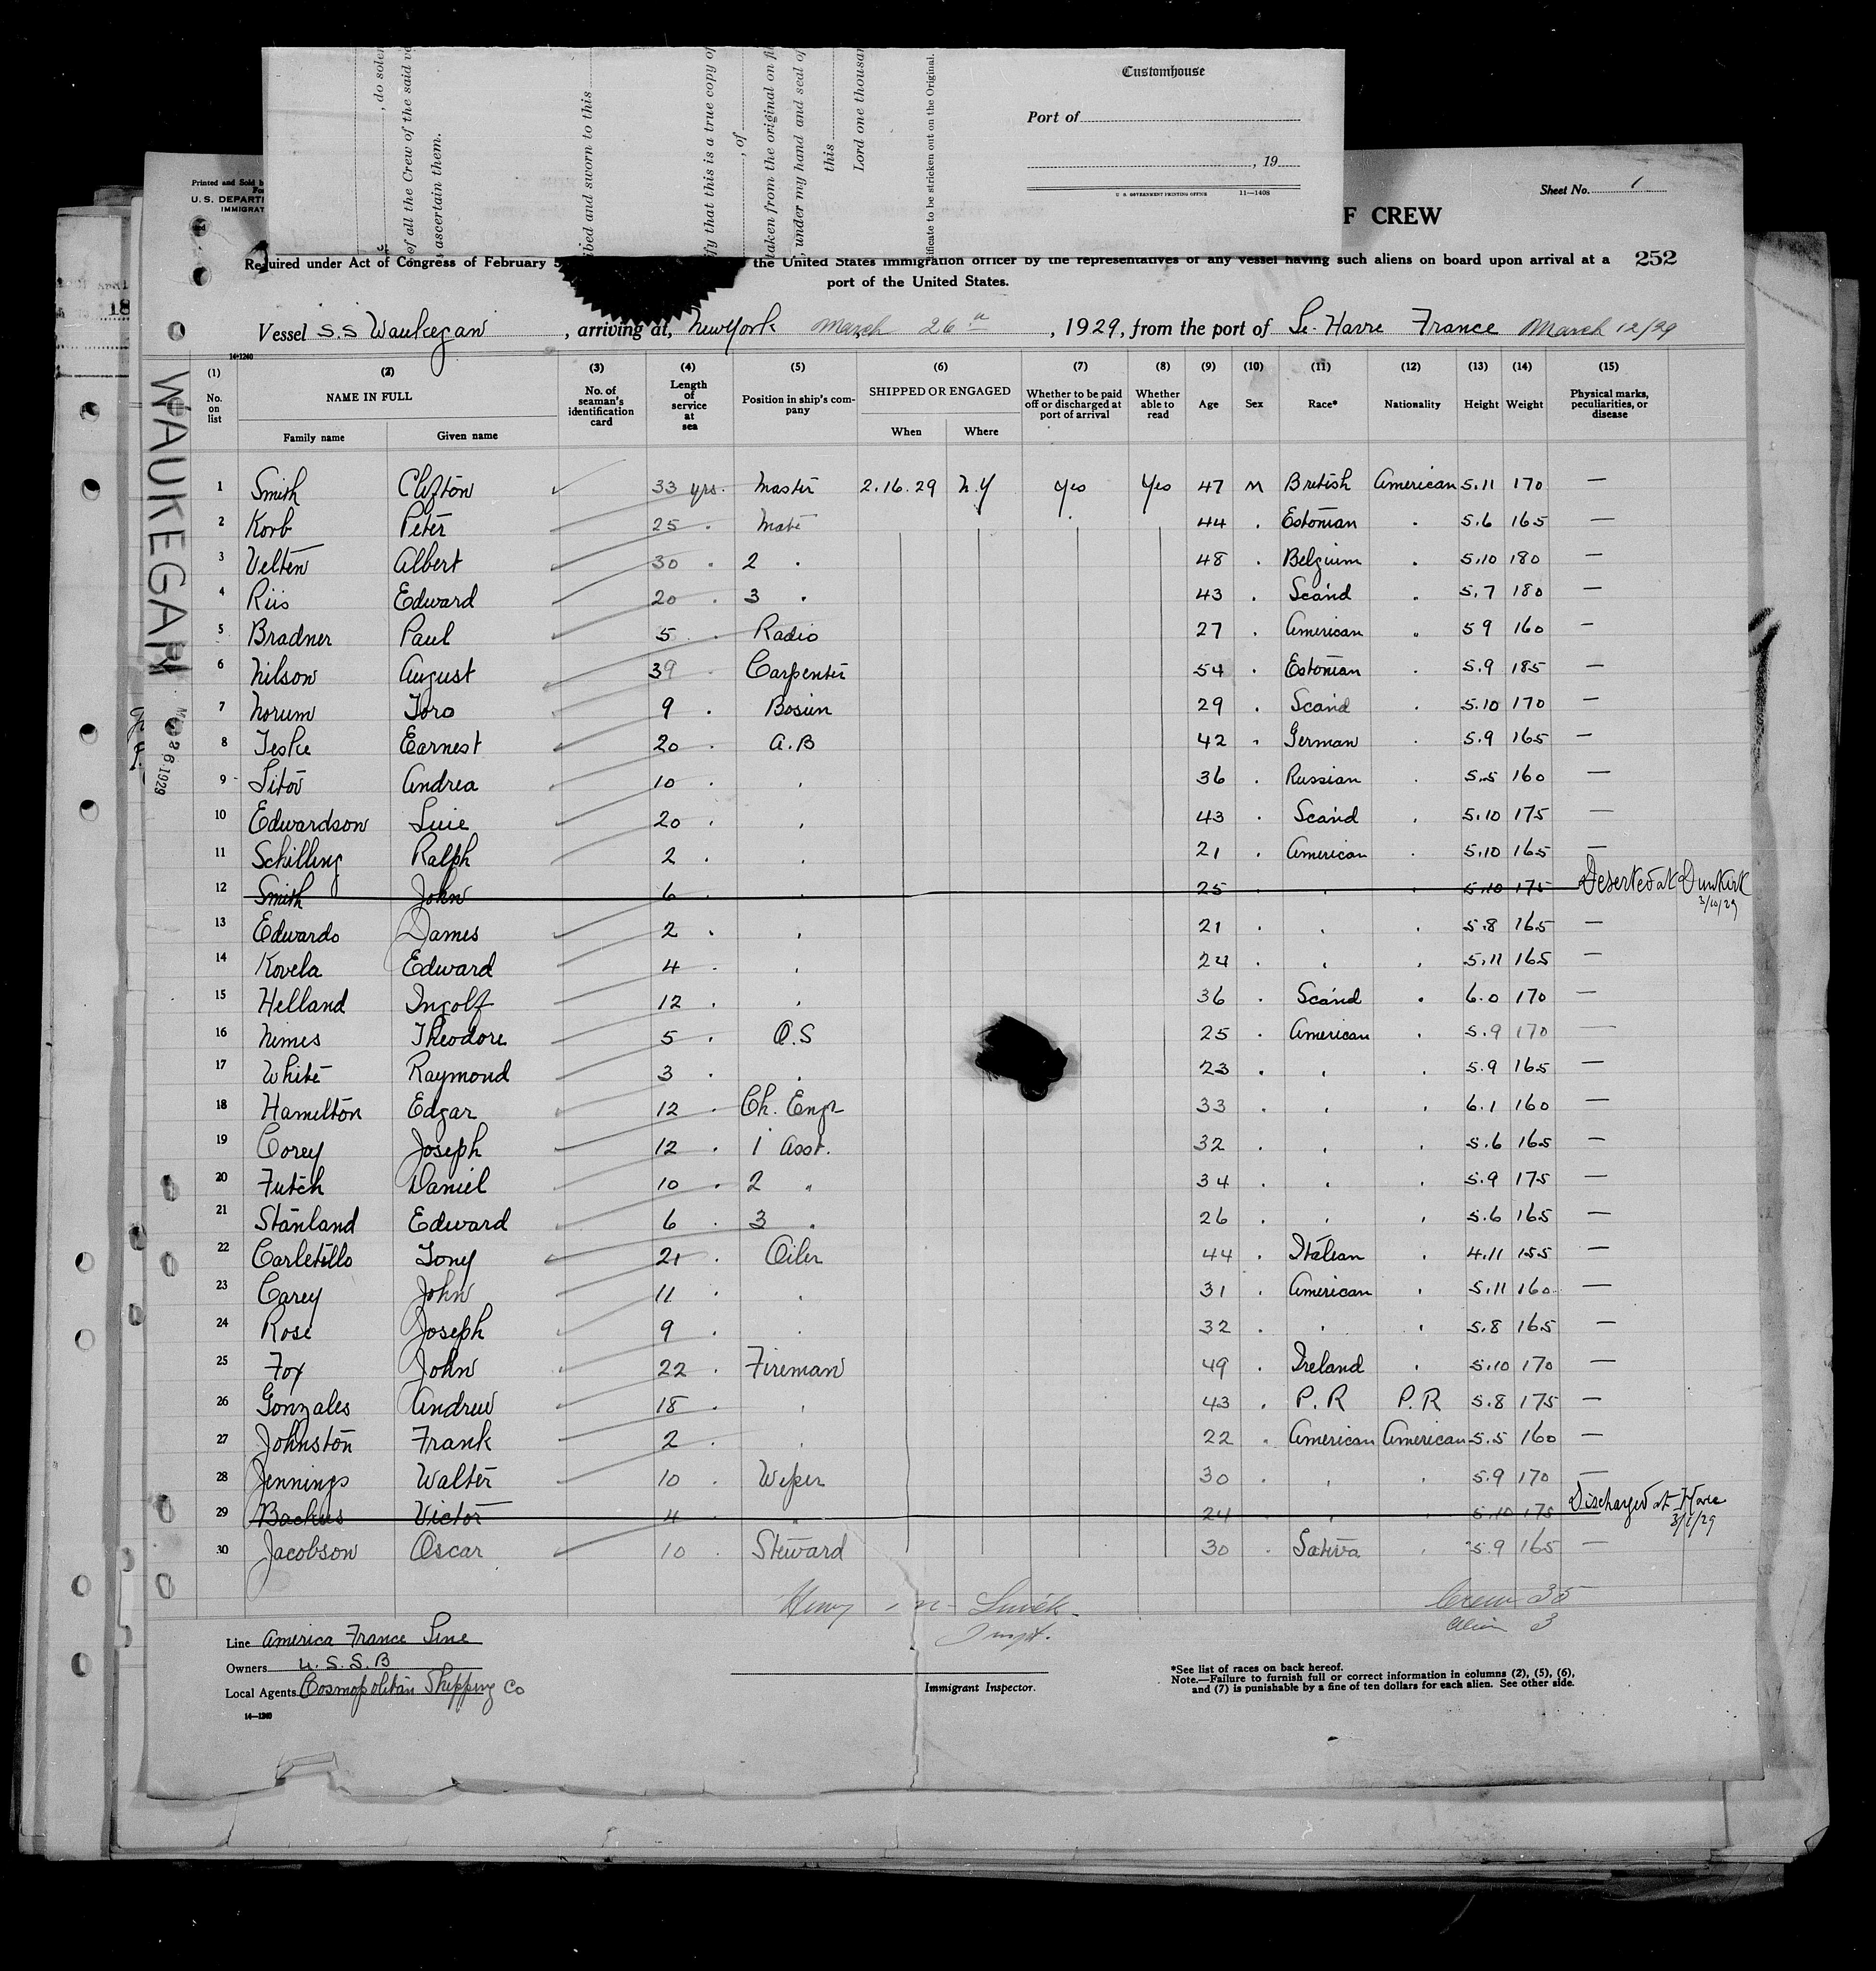 Customhouse
Port of
, 19
U. S. GOVERNMENT PRINTING OFFICE 11—1408
, do solem
of all the Crew of the said ve
ascertain them.
ibed and sworn to this
fy that this is a true copy of
, of
taken from the original on fil
under my hand and seal of
this
Lord one thousan
ificate to be stricken out on the Original.
Printed and Sold b
U. S. DEPART
IMMIGRAT
Sheet No. 1
F CREW
Required under Act of Congress of February 5 the United States immigration officer by the representatives of any vessel having such aliens on board upon arrival at a 252
port of the United States.
Vessel S.S Waukegan, arriving at, New York March 26th, 1929, from the port of Le Havre France March 12/29
14-1240
WAUKEGAN
26.1929
(1) (2) (3) (4) (5) (6) (7) (8) (9) (10) (11) (12) (13) (14) (15)
No. on list NAME IN FULL No. of seaman's identification card Length of service at sea Position in ship's company SHIPPED OR ENGAGED Whether to be paid off or discharged at port of arrival Whether able to read Age Sex Race* Nationality Height Weight Physical marks, peculiarities, or disease
Family name Given name When Where
1 Smith Clifton 33 yrs. Master 2.16.29 N.Y Yes Yes 47 M British American 5.11 170 —
2 Korb Peter 25 . Mate 44 . Estonian . 5.6 165 —
3 Velten Albert 30 . 2 . 48 . Belgium . 5.10 180 —
4 Riis Edward 20 . 3 . 43 . Scand . 5.7 180 —
5 Bradner Paul 5 . Radio 27 . American . 5 9 160 —
6 Nilson August 39 Carpenter 54 . Estonian . 5.9 185 —
7 Norum Toro 9 . Bosun 29 . Scand . 5.10 170 —
8 Teske Earnest 20 . A.B 42 . German . 5.9 165 —
9 Titov Andrea 10 . . 36 . Russian . 5.5 160 —
10 Edwardson Luie 20 . . 43 . Scand . 5.10 175 —
11 Schilling Ralph 2 . . 21 . American . 5.10 165 —
12 Smith John 6 . . 25 . . . 5.10 175 Deserted at Dunkirk 3/10/29
13 Edwards James 2 . . 21 . . . 5.8 165 —
14 Kovela Edward 4 . . 24 . . . 5.11 165 —
15 Helland Ingolf 12 . . 36 . Scand . 6.0 170 —
16 Nimes Theodore 5 . O.S 25 . American . 5.9 170 —
17 White Raymond 3 . . 23 . . . 5.9 165 —
18 Hamilton Edgar 12 . Ch. Engr 33 . . . 6.1 160 —
19 Corey Joseph 12 . 1 Asst. 32 . . . 5.6 165 —
20 Futch Daniel 10 . 2 " 34 . . . 5.9 175 —
21 Stanland Edward 6 . 3 . 26 . . . 5.6 165 —
22 Carletello Tony 21 . Oiler 44 . Italian . 4.11 155 —
23 Carey John 11 . . 31 . American . 5.11 160 —
24 Rose Joseph 9 . . 32 . . . 5.8 165 —
25 Fox John 22 . Fireman 49 . Ireland . 5.10 170 —
26 Gonzales Andrew 18 . . 43 . P.R P.R 5.8 175 —
27 Johnston Frank 2 . . 22 . American American 5.5 160 —
28 Jennings Walter 10 . Wiper 30 . . . 5.9 170 —
29 Backus Victor 4 . " 24 . . . 5.10 175 Discharged at Havre
30 Jacobson Oscar 10 . Steward 30 . . 5.9 165 —
Henry
Crew 35
Alien 3
Line America France Line
Owners U.S.S.B
Local Agents Cosmopolitan Shipping Co
14—1240
Immigrant Inspector.
*See list of races on back hereof.
Note.—Failure to furnish full or correct information in columns (2), (5), (6),
and (7) is punishable by a fine of ten dollars for each alien. See other side.